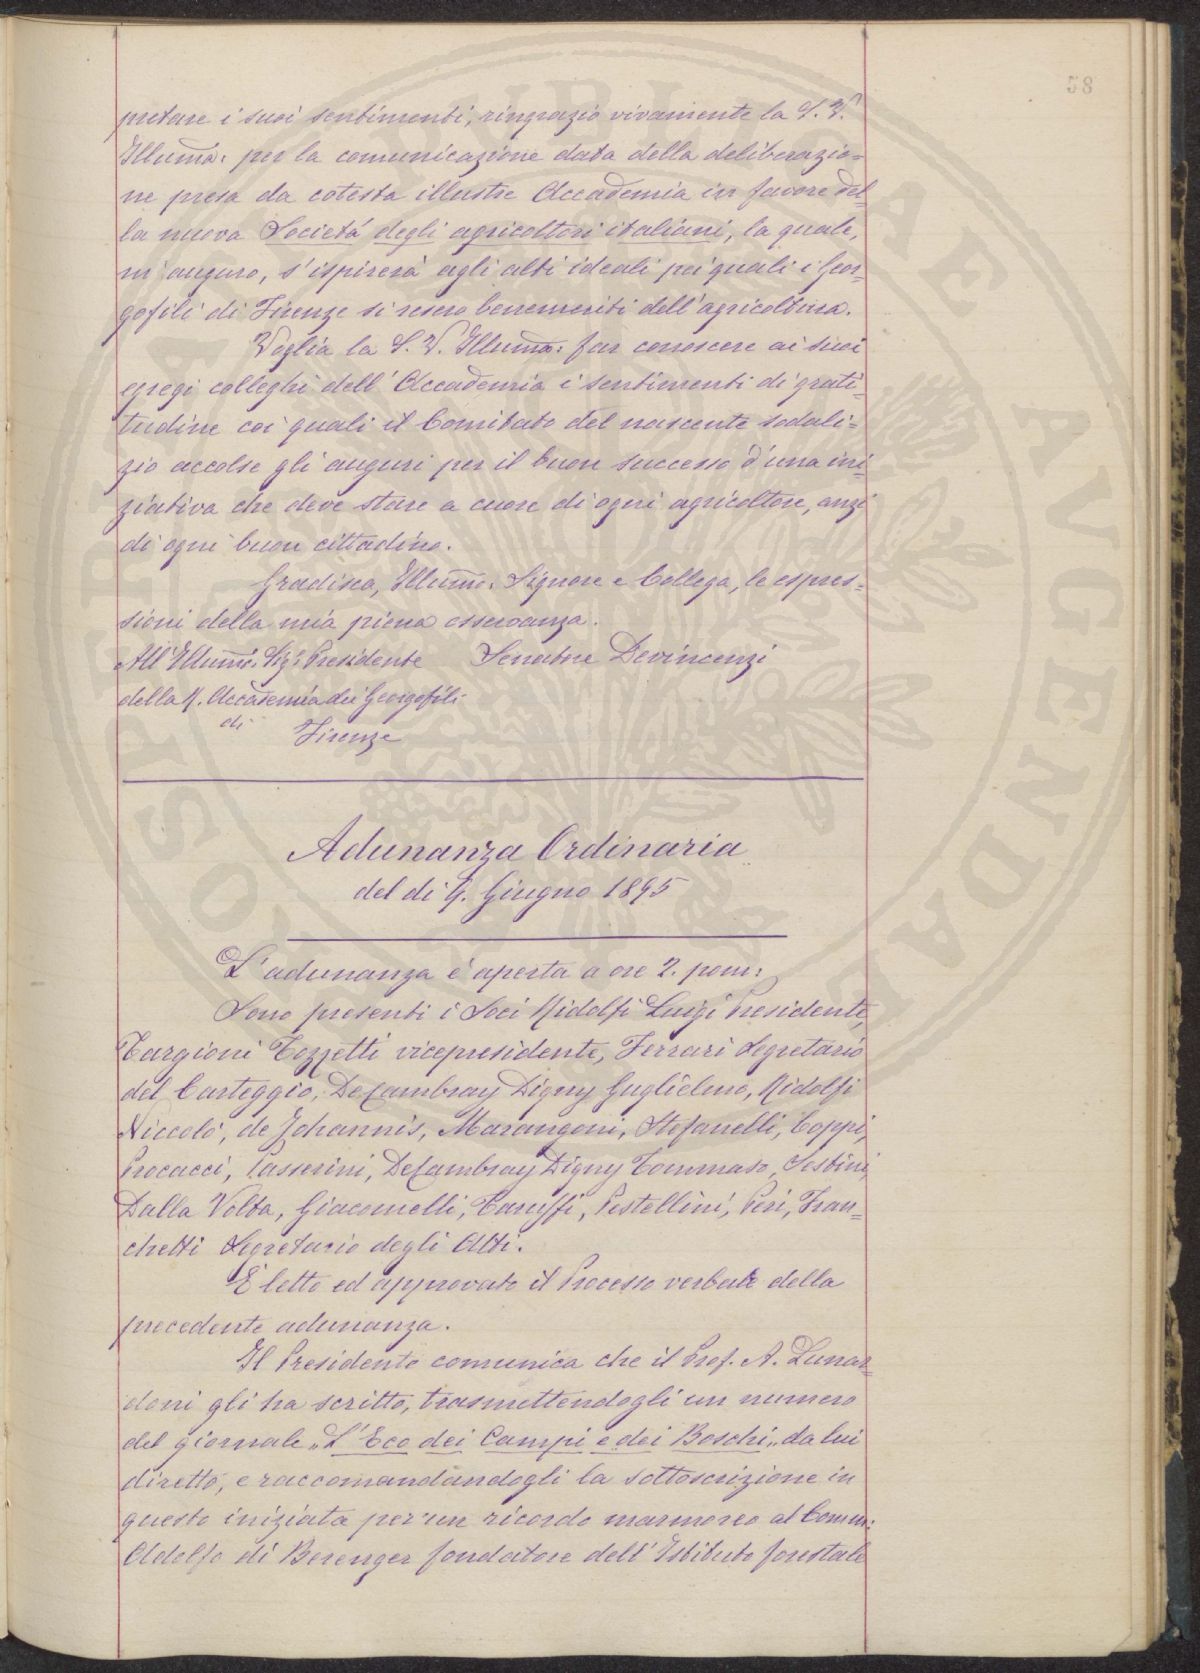 58
pretare i suoi sentimenti, ringrazio vivamente la S. V.
Illuma: per la comunicazione data della deliberazio=
ne presa da cotesta illustre Accademia in favore del=
la nuova Società degli agricoltori italiani, la quale,
m'auguro, s'ispirerà agli alti ideali pei quali i Geor=
gofili di Firenze si resero benemeriti dell'agricoltura.
Voglia la S. V. Illuma: far conoscere ai suoi
egregi colleghi dell'Accademia i sentimenti di grati=
tudine coi quali il Comitato del nascente sodali=
zio accolse gli auguri per il buon successo d'una ini=
ziativa che deve stare a cuore di ogni agricoltore, anzi
di ogni buon cittadino.
Gradisca, Illumo: Signore e Collega, le espres=
sioni della mia piena osservanza.
All'Illumo: Sigr: Presidente Senatore Devincenzi
della R. Accademia dei Georgofili
di Firenze
Adunanza Ordinaria
del dì 9. Giugno 1895
L'adunanza è aperta a ore 2. pom:
Sono presenti i Soci Ridolfi Luigi Presidente,
Targioni Tozzetti vicepresidente, Ferrari Segretario
del Carteggio, De Cambray Digny Guglielmo, Ridolfi
Niccolò, de Johannis, Marangoni, Stefanelli, Coppi,
Procacci, Passerini, De Cambray Digny Tommaso, Sestini,
Dalla Volta, Giacomelli, Caruffi, Pestellini, Peri, Fran=
chetti Segretario degli Atti.
È letto ed approvato il Processo verbale della
precedente adunanza.
Il Presidente comunica che il Prof. A. Lunar=
doni gli ha scritto, trasmettendogli un numero
del giornale „L'Eco dei Campi e dei Boschi„ da lui
diretto, e raccomandandogli la sottoscrizione in
questo iniziata per un ricordo marmoreo al Comm:
Adolfo di Berenger fondatore dell'Istituto forestale